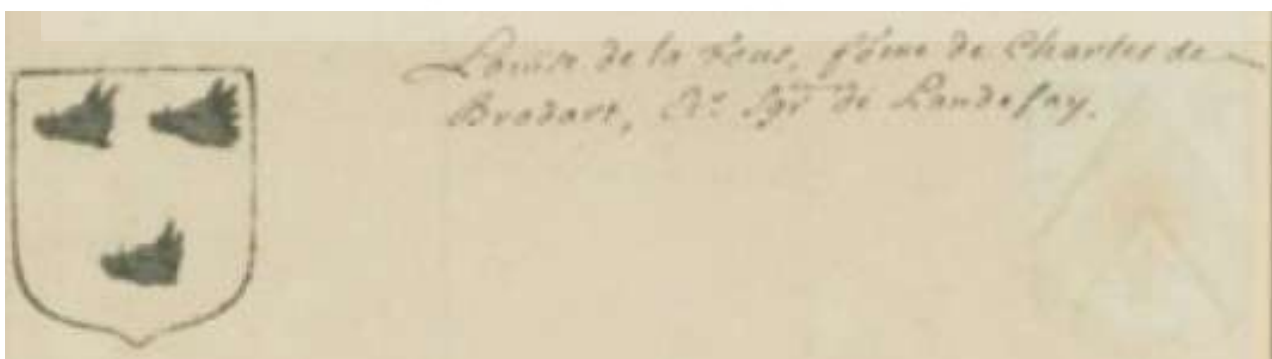 Louise de la Fons, fẽme de Charles de
Brodart, Er. Sgr. de Landifay.